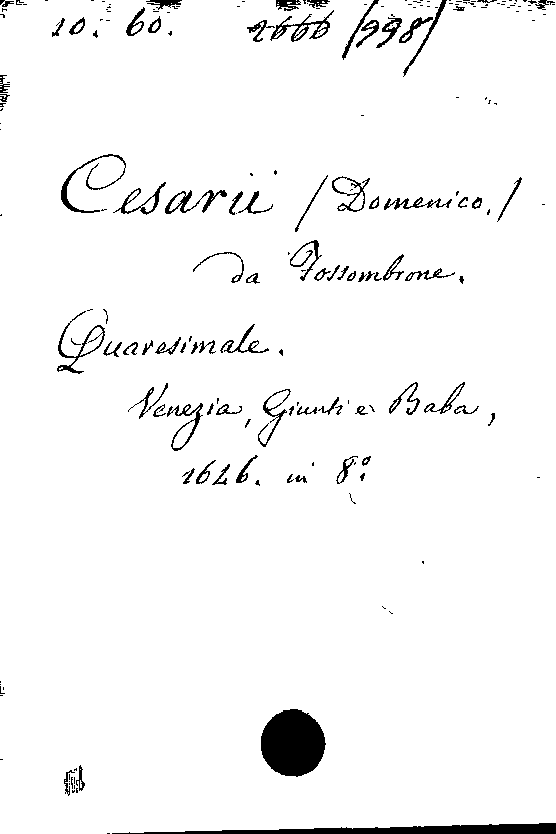 10. 60. 2666 /998/
Cesarii /Domenico./
da Fossombrone.
Quaresimale.
Venezia, Giunti e Baba,
1646. in 8º.